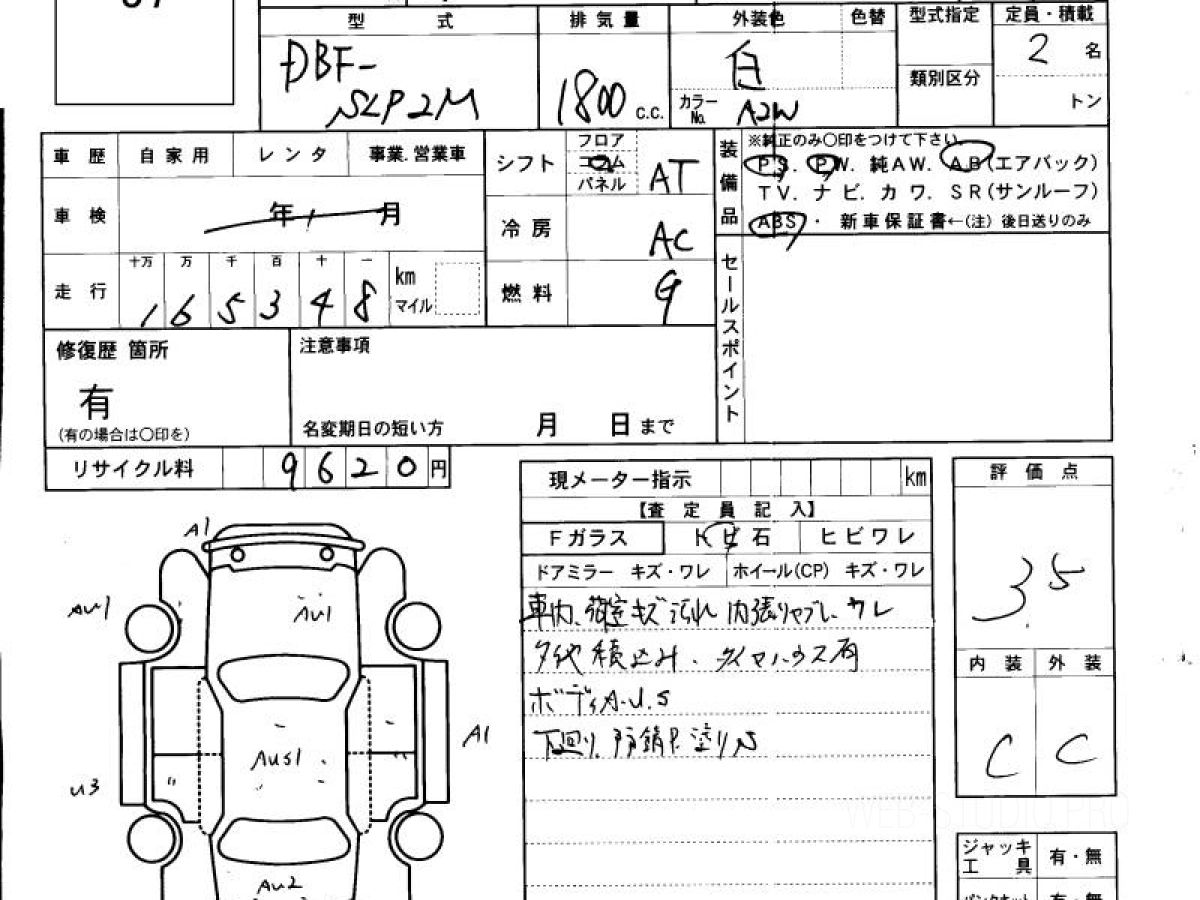 型 式
排 気 量
外装色
色替
型式指定
定員・積載
DBF-
SLP2M
1800 C.C.
白
カラーNo. A2W
類別区分
2 名
トン
車 歴
自 家 用
レ ン タ
事業.営業車
シフト
フロア
コラム
パネル
AT
装備品
※純正のみ〇印をつけて下さい
PS. PW. 純AW. AB(エアバック)
TV. ナビ. カワ. SR(サンルーフ)
ABS ・ 新車保証書←(注) 後日送りのみ
車 検
年 月
冷 房
AC
走 行
十万 万 千 百 十 一
1 6 5 3 4 8
km
マイル
燃 料
G
セールスポイント
修復歴 箇所
有
(有の場合は〇印を)
注意事項
名変期日の短い方 月 日 まで
リサイクル料
9 6 2 0 円
現メーター指示
km
【査 定 員 記 入】
Fガラス
トビ石
ヒビワレ
ドアミラー キズ・ワレ
ホイール(CP) キズ・ワレ
車内、荷室キズ汚れ 内張りヤブレ ワレ
積込み
ボディA.U.S
下回り、防錆 塗りS
評 価 点
3.5
内 装
外 装
C
C
A1
AU1
AU1
A1
AUS1
U3
AU2
WEB STUDIO.PRO
ジャッキ
工 具
有・無
パンクキット
有・無